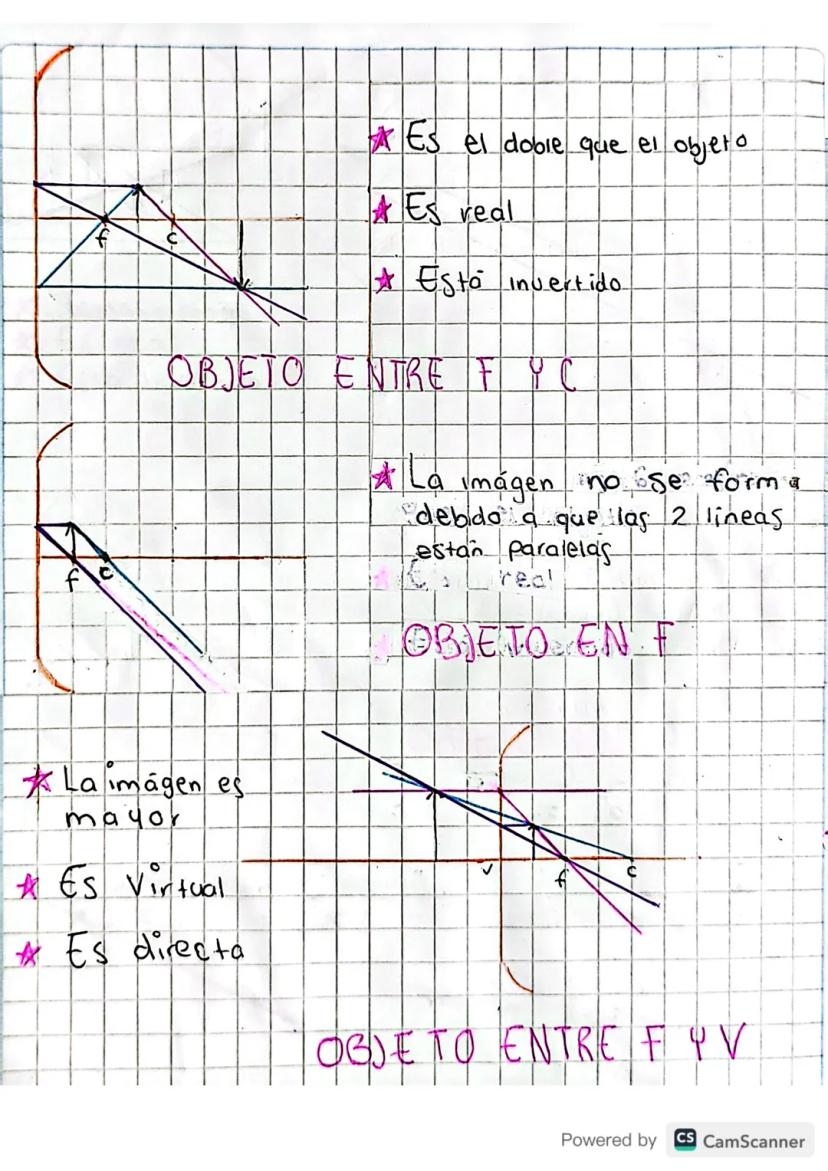 ★ Es el doble que el objeto
★ Es real
f c
★ Está invertido
OBJETO ENTRE F Y C
★ La imágen no se forma
debido a que las 2 lineas
estan paralelas
f c
real
OBJETO EN F
★ La imágen es
mayor
★ Es Virtual
v f c
★ Es directa
OBJETO ENTRE F Y V
Powered by CS CamScanner